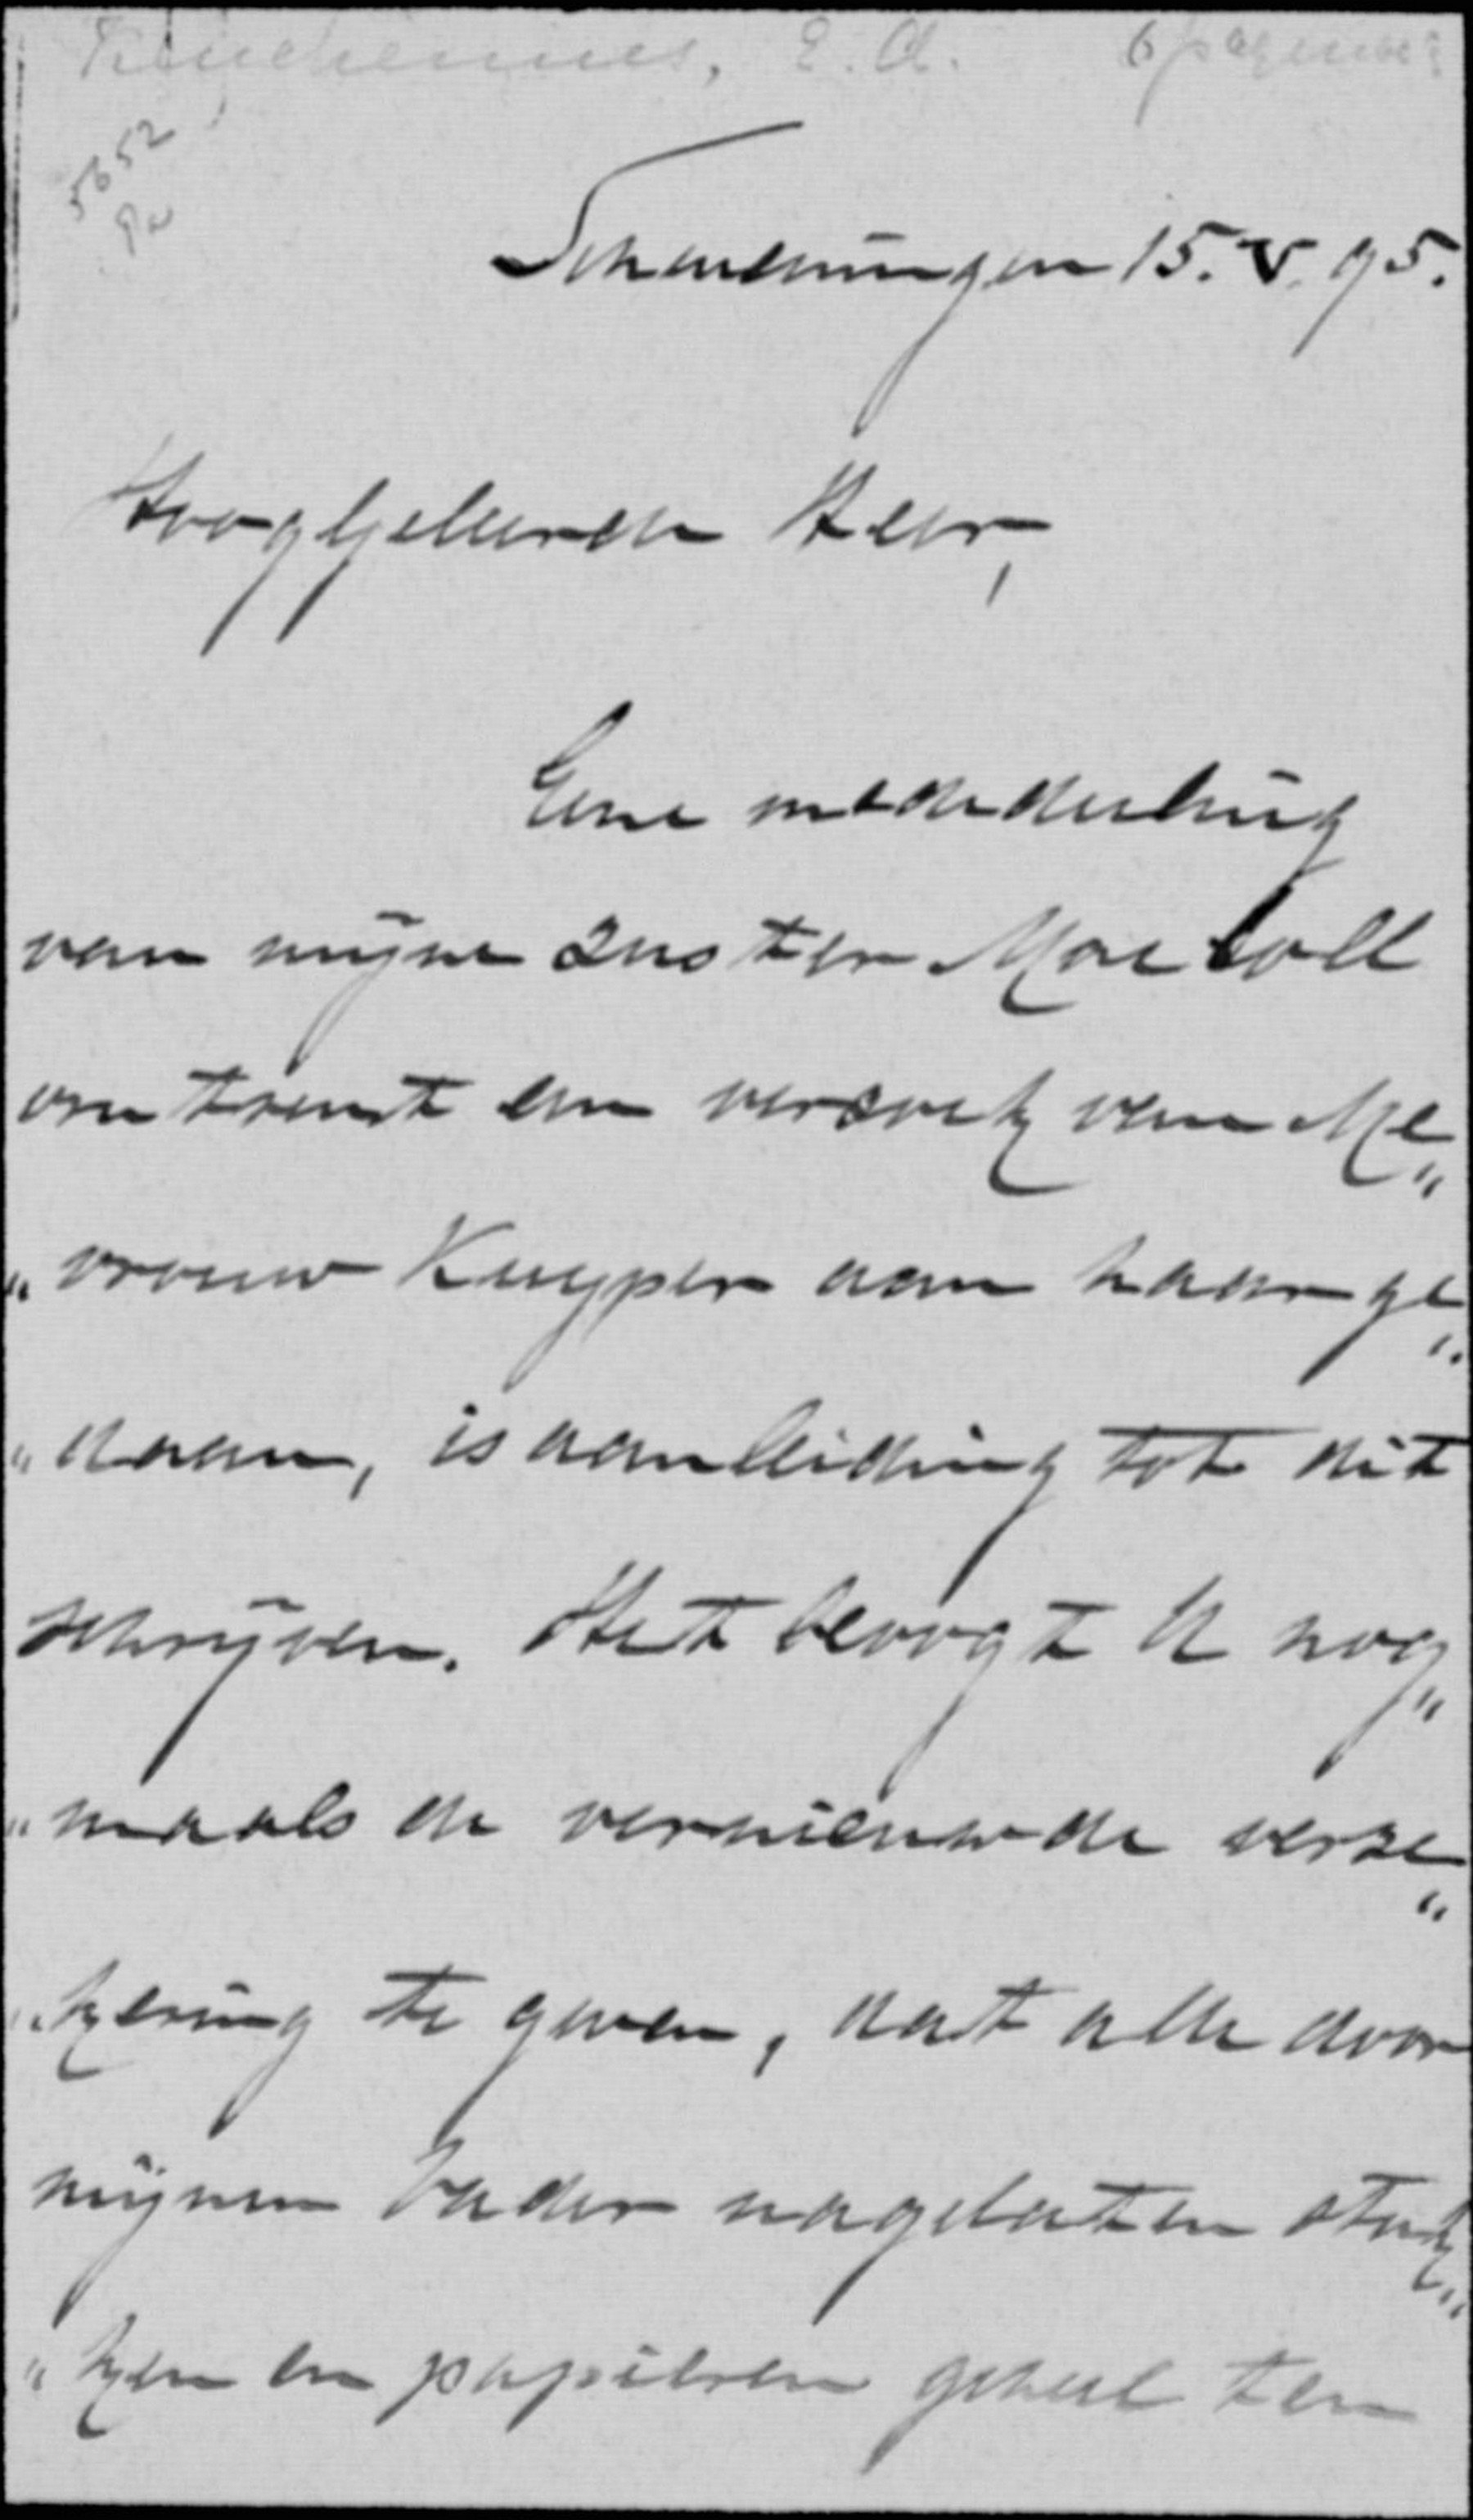 Keuchenius, E. A. 6 pagina's
5652
Scheveningen 15. V. 95.
Hooggeboren Heer,
Eene mededeeling
van mijne zuster
omtrent een verzoek van Me„
„vrouw Kuyper aan haar ge„
„daan, is aanleiding tot dit
schrijven. Het beoogt U nog„
„maals de vernieuwde verze„
„kering te geven, dat alle door
mijnen Vader nagelaten stuk„
„ken en papieren geheel ten